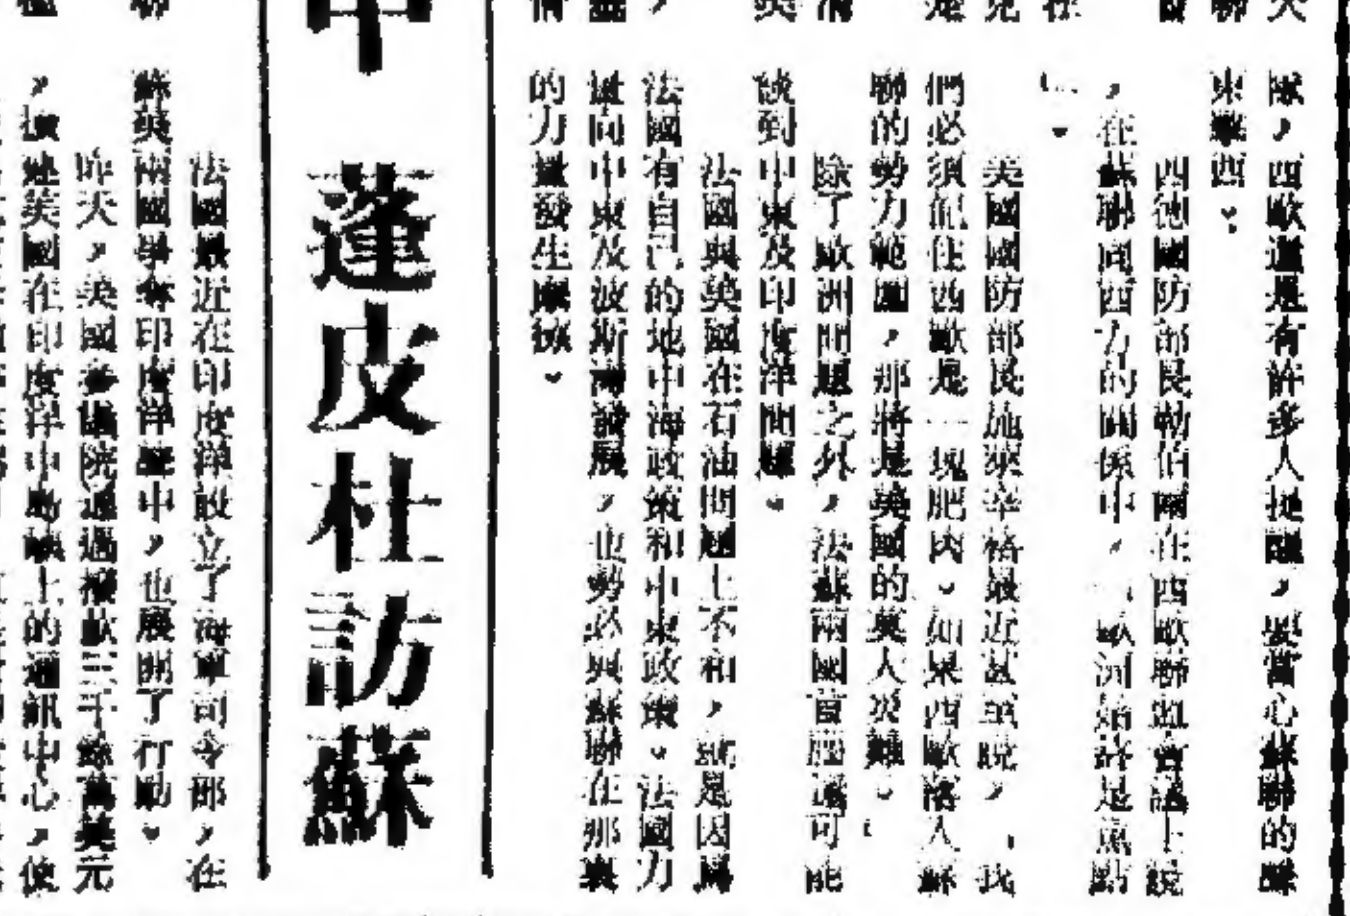 隊,西歐還是有許多人提醒,要當心蘇聯的聲
東擊西。
西德國防部長勒伯爾在西歐聯盟會議上說
,在蘇聯同西方的關係中,「歐洲始終是焦點
」。
美國國防部長施萊辛格最近甚至說,「我
們必須記住西歐是一塊肥肉。如果西歐落入蘇
聯的勢力範圍,那將是美國的莫大災難。」
除了歐洲問題之外,法蘇兩國首腦還可能
談到中東及印度洋問題。
法國與美國在石油問題上不和,就是因爲
法國有自己的地中海政策和中東政策。法國力
量向中東及波斯灣發展,也勢必與蘇聯在那裏
的力量發生摩擦。
中 蓬皮杜訪蘇
法國最近在印度洋設立了海軍司令部,在
蘇美兩國爭奪印度洋當中,也展開了行動。
昨天,美國參議院通過撥款三千餘萬美元
,擴建美國在印度洋中島嶼上的通訊中心,使